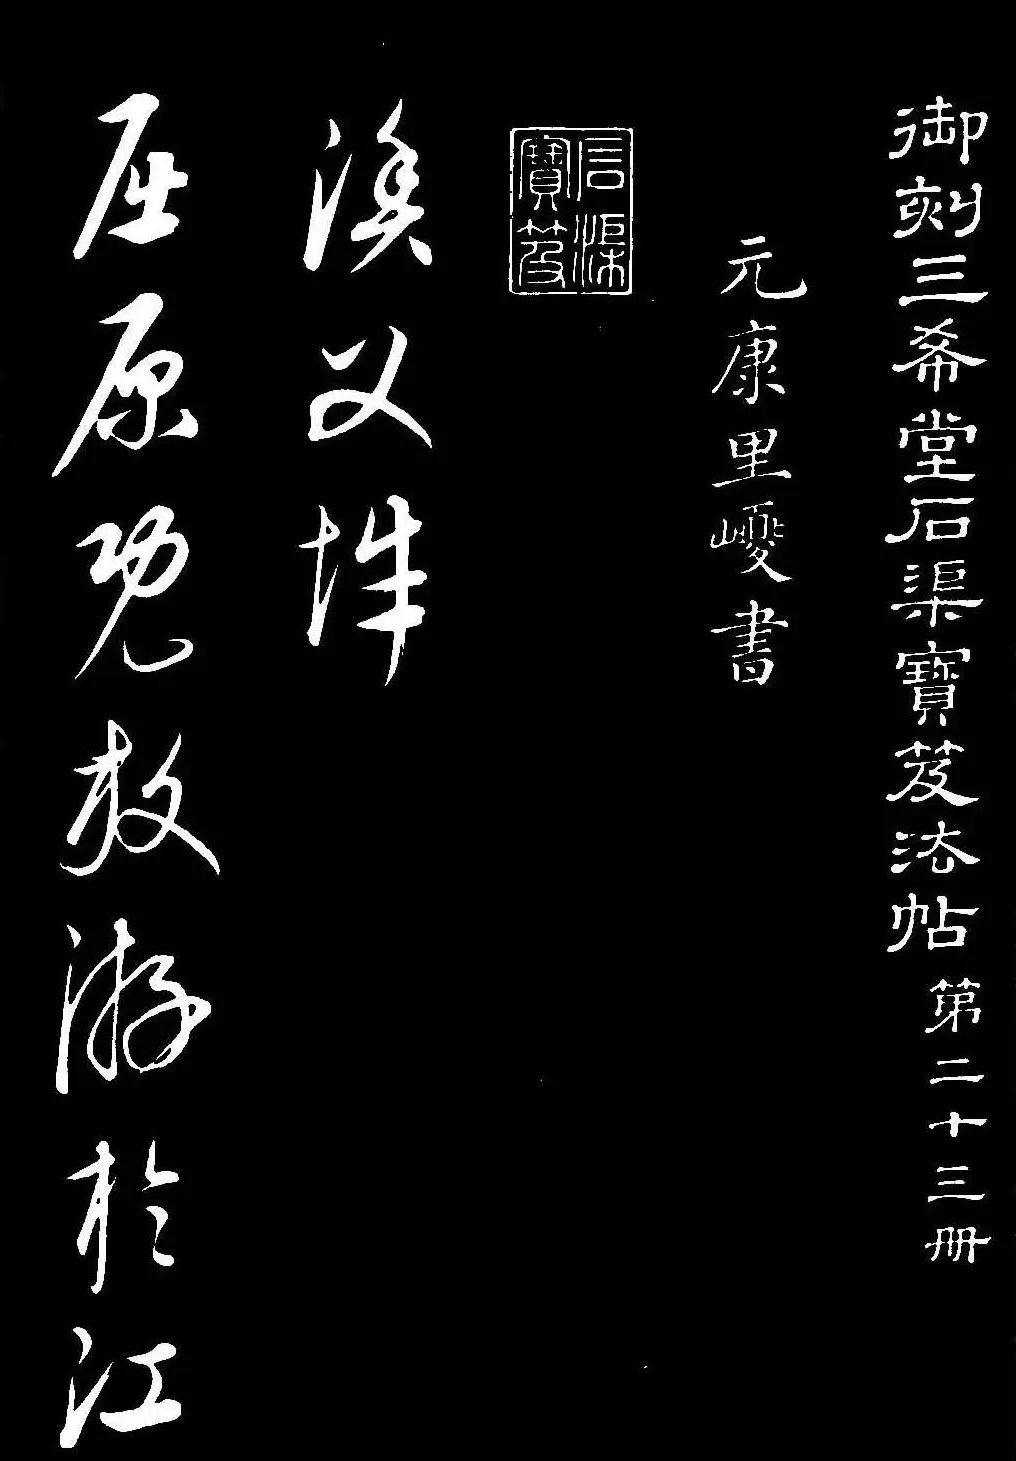 御刻三希堂石渠寶笈法帖第二十三冊
元康里巙書
石渠寶笈
漁父辭
屈原既放游於江